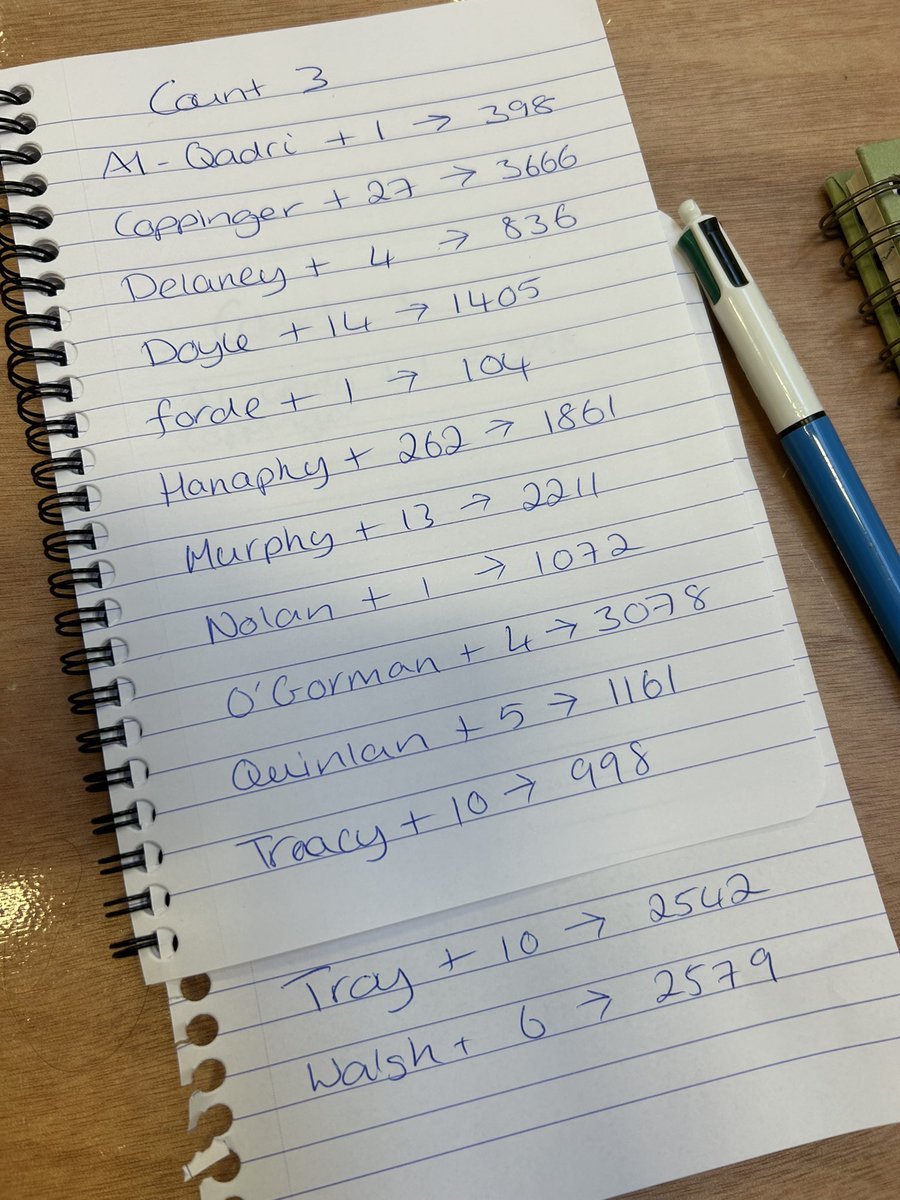 Count 3
Al-Qadri + 1 → 398
Coppinger + 27 → 3666
Delaney + 4 → 836
Doyle + 14 → 1405
forde + 1 → 104
Hanaphy + 262 → 1861
Murphy + 13 → 2211
Nolan + 1 → 1072
O'Gorman + 4 → 3078
Quinlan + 5 → 1161
Treacy + 10 → 998
Troy + 10 → 2542
Walsh + 6 → 2579